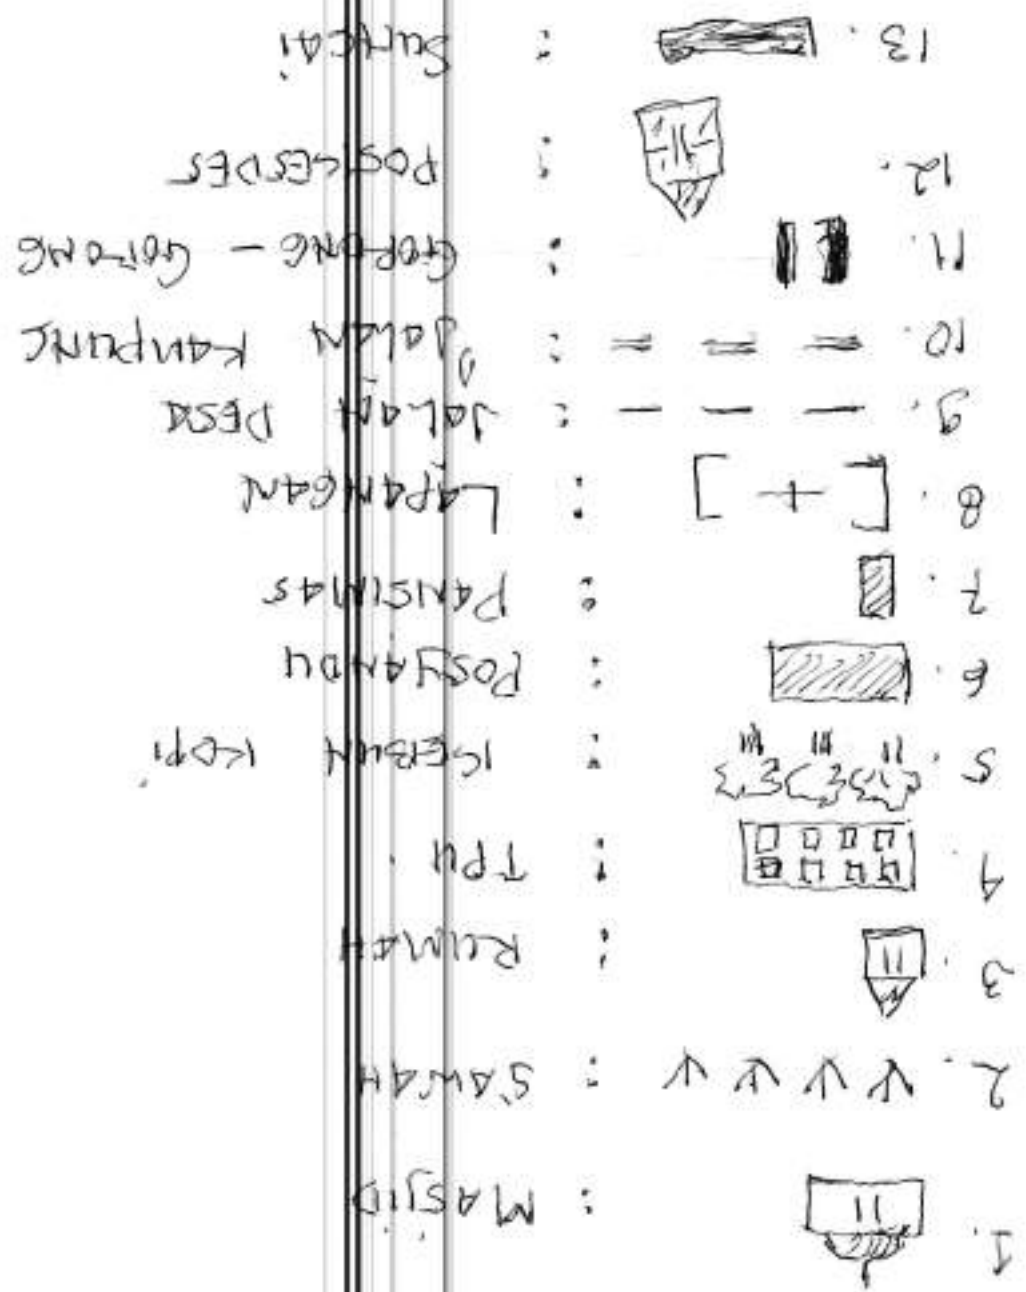 1. : MASJID
2. : SAWAH
3. : RUMAH
4. : TPU
5. : KEBUN KOPI
6. : POSYANDU
7. : PANSIMAS
8. : LAPANGAN
9. : JALAN DESA
10. : JALAN KAMPUNG
11. : GORONG - GORONG
12. : POSKESDES
13. : SUNGAI